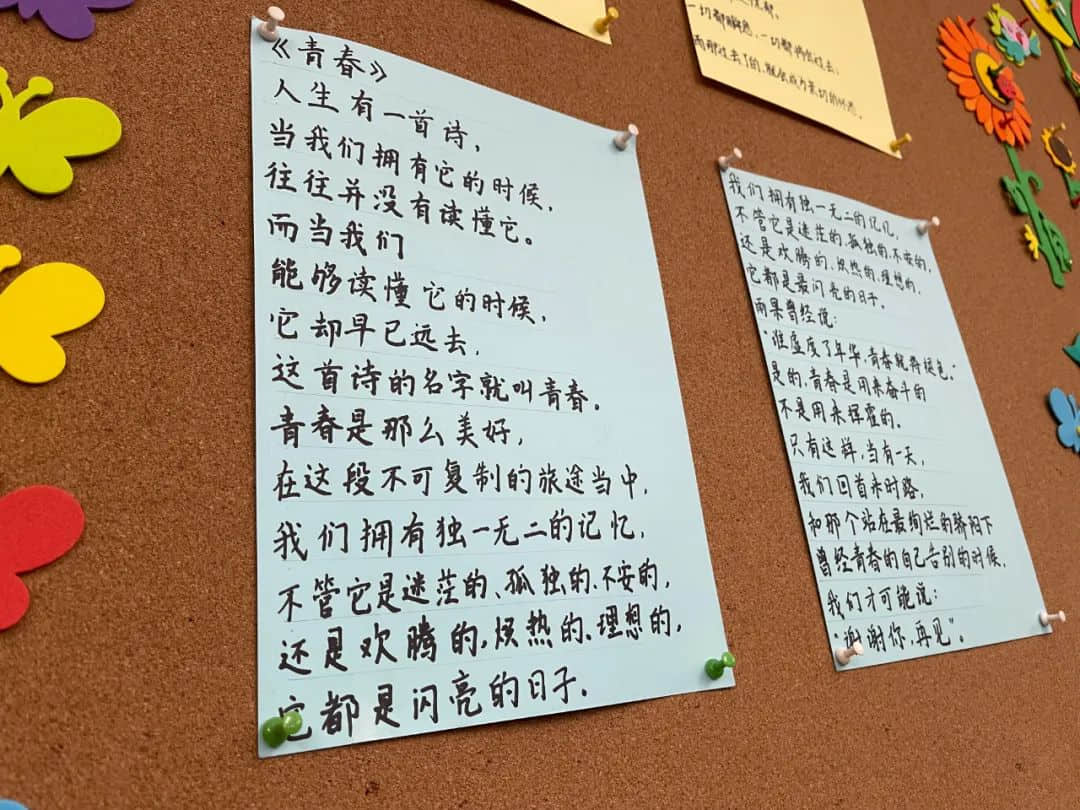 《青春》
人生有一首诗，
当我们拥有它的时候，
往往并没有读懂它。
而当我们
能够读懂它的时候，
它却早已远去，
这首诗的名字就叫青春。
青春是那么美好，
在这段不可复制的旅途当中，
我们拥有独一无二的记忆，
不管它是迷茫的、孤独的、不安的，
还是欢腾的，炽热的、理想的，
它都是闪亮的日子。
一切都瞬息，一切都将会过去；
而那过去了的，就会成为亲切的怀恋。
我们拥有独一无二的记忆，
不管它是迷茫的、孤独的、不安的，
还是欢腾的、炽热的、理想的，
它都是最闪亮的日子。
雨果曾经说：
“谁虚度了年华，青春就将褪色。”
是的，青春是用来奋斗的
不是用来挥霍的。
只有这样，当有一天，
我们回首来时路，
和那个站在最绚烂的骄阳下
曾经青春的自己告别的时候，
我们才可能说：
“谢谢你，再见”。